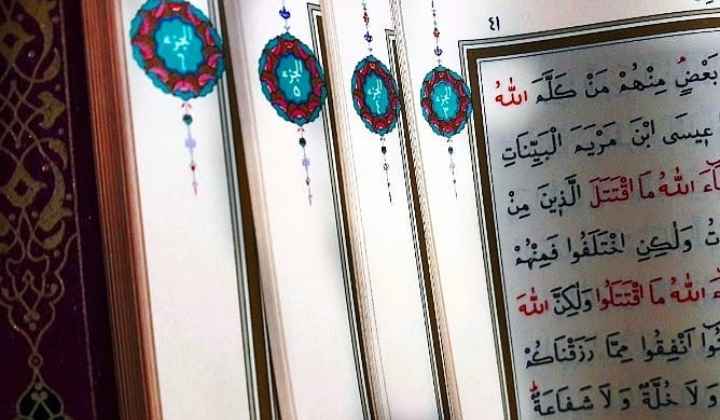 ٤١
بَعْضٍ مِنْهُمْ مَنْ كَلَّمَ اللّٰهُ
عِيسَى ابْنَ مَرْيَمَ الْبَيِّنَاتِ
اءَ اللّٰهُ مَا اقْتَتَلَ الَّذِينَ مِنْ
تُ وَلٰكِنِ اخْتَلَفُوا فَمِنْهُمْ
ءَ اللّٰهُ مَا اقْتَتَلُوا وَلٰكِنَّ اللّٰهَ
نُوا اَنْفِقُوا مِمَّا رَزَقْنَاكُمْ
وَلَا خُلَّةٌ وَلَا شَفَاعَةٌ
الجزء
٣
الجزء
٤
الجزء
٥
الجزء
٦